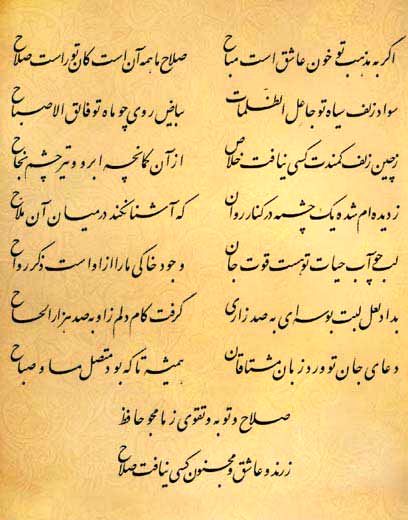 اگر به مذهب تو خون عاشق است مباح صلاح ما همه آن است کان تو راست صلاح
سواد زلف سیاه تو جاعل الظلمات بیاض روی چو ماه تو فالق الاصباح
ز چین زلف کمندت کسی نیافت خلاص از آن کمانچه ابرو و تیر چشم نجاح
ز دیده‌ام شده یک چشمه در کنار روان که آشنا نکند در میان آن ملاح
لب چو آب حیات تو هست قوت جان وجود خاکی ما را از اوست ذکر رواح
بداد لعل لبت بوسه‌ای به صد زاری گرفت کام دلم زاو به صد هزار الحاح
دعای جان تو ورد زبان مشتاقان همیشه تا که بود متصل مسا و صباح
صلاح و توبه و تقوی ز ما مجو حافظ
ز رند و عاشق و مجنون کسی نیافت صلاح